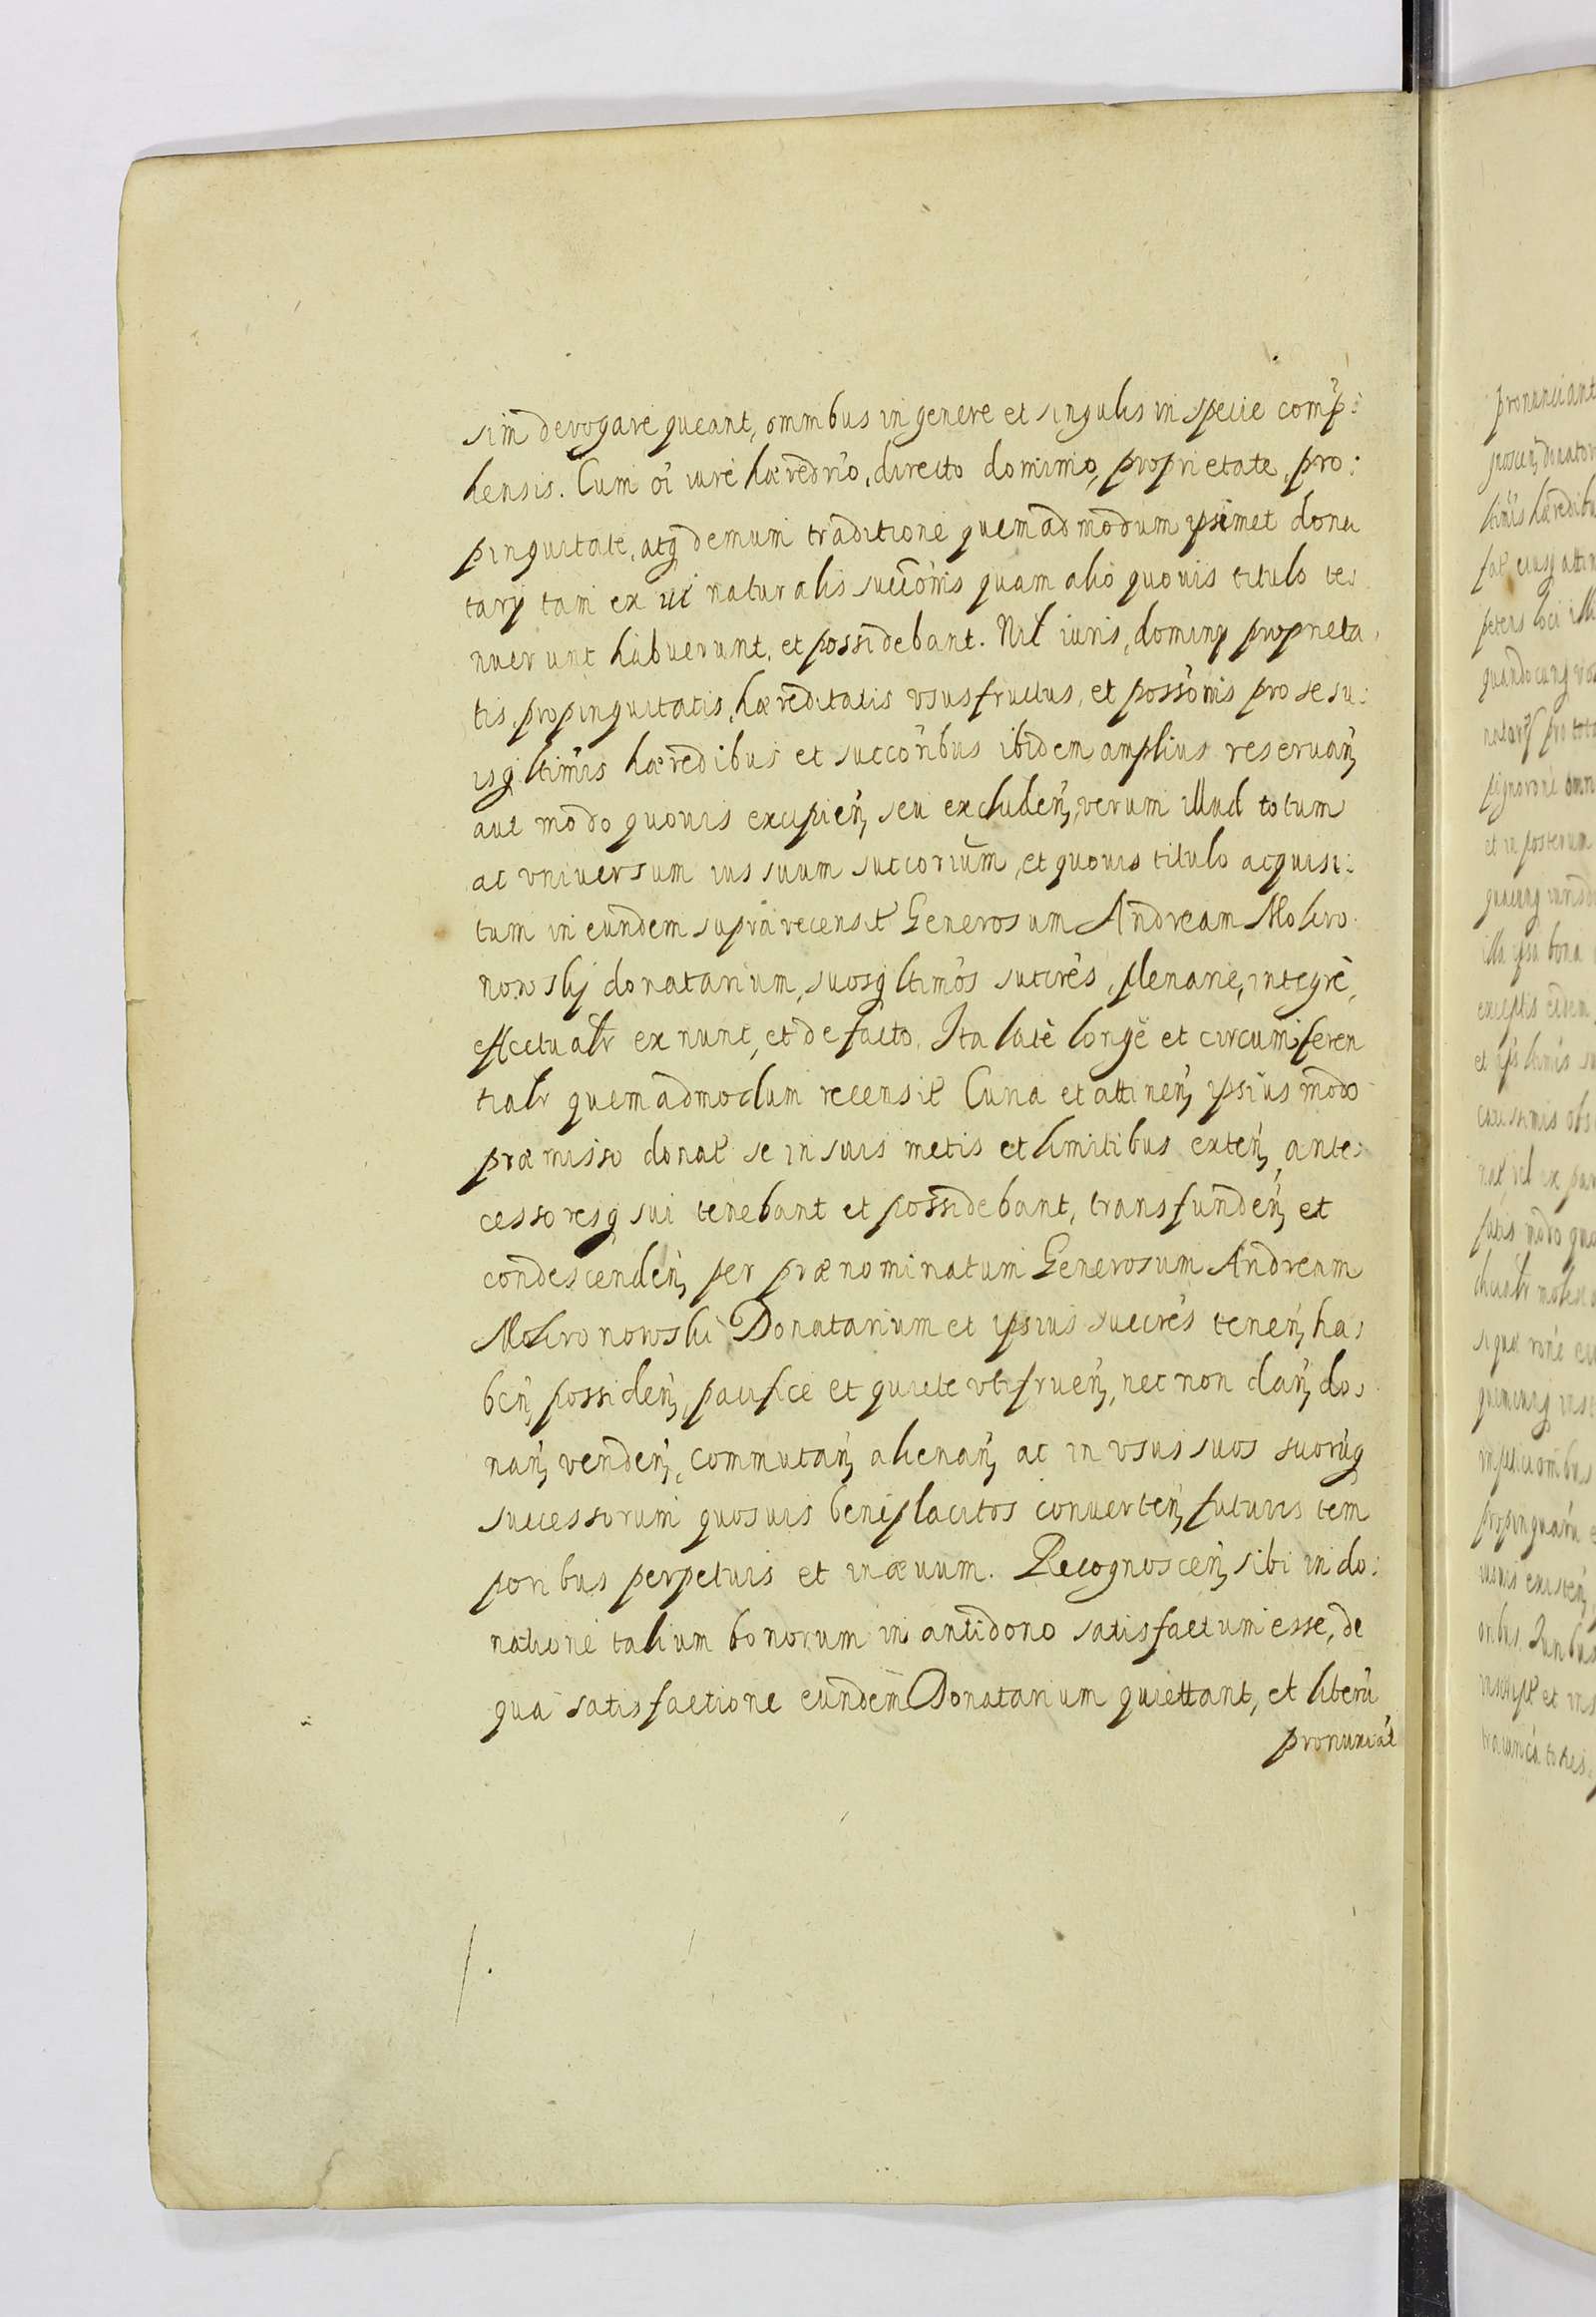 sim derogare queant, omnibus in genere et singulis in specie comp̃:
hensis. Cum oī iure hæredrio, directo dominio, proprietate, pro:
pinquitate, atq demum traditione quemadmodum ipsimet dona
tarÿ tam ex vi naturalis succonis quam alio quouis titulo te:
nuerunt habuerunt, et possidebant. Nil iuris, dominÿ proprieta,
tis, propinquitatis, hæreditatis vsusfructus, et possonis pro se su:
isq ltimis hæredibus et succoribus ibidem amplius reseruan̄,
aut modo quouis excipien̄, seu excluden̄, verum illud totum
ac vniuersum ius suum succorium, et quouis titulo acquisi:
tum in eundem supra recensit Generosum Andream Mokro
nowskÿ donatarium, suosq ltimos succres, plenarie, integrè,
effectualr ex nunc, et de facto. Ita latè longè et circumferen
tialr quemadmodum recensit Curia et attinen̄, ipsius modo
præmisso donat se in suis metis et limitibus exten̄, ante:
cessoresq sui tenebant et possidebant, transfunden̄, et
condescenden̄, per prænominatum Generosum Andream
Mokronowski Donatarium et ipsius succres tenen̄, ha:
ben̄, possiden̄, pacifice et quiete vtifruen̄, nec non dan̄, do:
nan̄, venden̄, commutan̄, alienan̄, ac in vsus suos suorūq
successorum quosuis beneplacitos conuerten̄, futuris tem
poribus perpetuis et in æuum. Recognoscen̄, sibi in do:
natione talium bonorum in antidono satisfactum esse, de
qua satisfactione eundem Donatarium quiettant, et liberū
pronunciāt